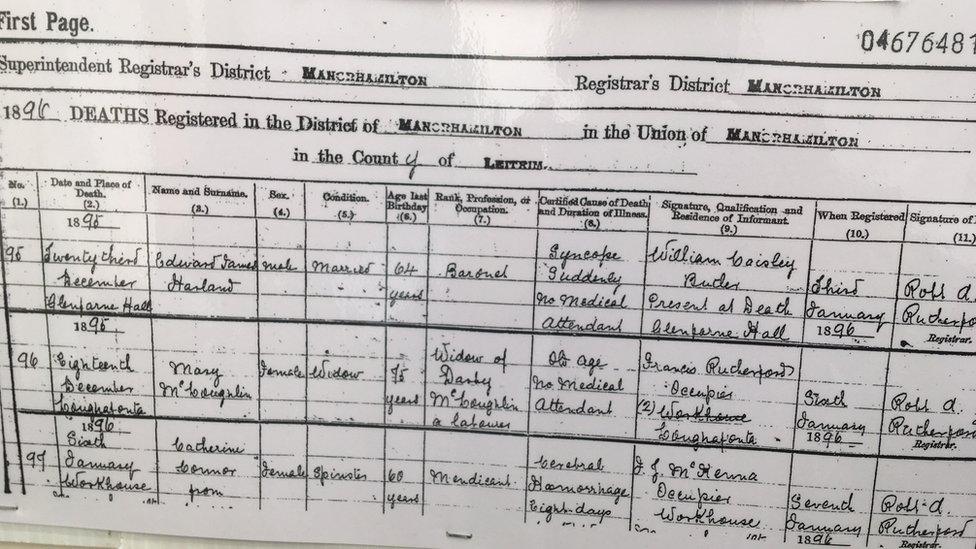 First Page.
04676481
Superintendent Registrar's District MANORHAMILTON Registrar's District MANORHAMILTON
1896 DEATHS Registered in the District of MANORHAMILTON in the Union of MANORHAMILTON
in the County of LEITRIM.
No. Date and Place of Name and Surname. Sex. Condition. Age last Rank, Profession, or Certified Cause of Death Signature, Qualification and When Registered Signature of
Death. Birthday Occupation. and Duration of Illness. Residence of Informant.
(1.) (2.) (3.) (4.) (5.) (6.) (7.) (8.) (9.) (10.) (11.)
1895
95 Twenty third Edward James male Married 64 Baronet Syncope William Caisley Third Robt A.
December Harland years Suddenly Butler January Rutherford
Glenfarne Hall No Medical Present at Death 1896 Registrar.
Attendant Glenfarne Hall
1895
96 Eighteenth Mary Female Widow 75 Widow of Old age Francis Rutherford Sixth Robt A.
December McLoughlin years Darby No Medical Occupier January Rutherford
McLoughlin Attendant (2) Workhouse 1896 Registrar.
a labourer
1896
97 Sixth Catherine Female Spinster 60 Mendicant Cerebral J. J. McKenna Seventh Robt A.
January Connor years Haemorrhage Occupier January Rutherford
Workhouse from Eight days Workhouse 1896 Registrar.